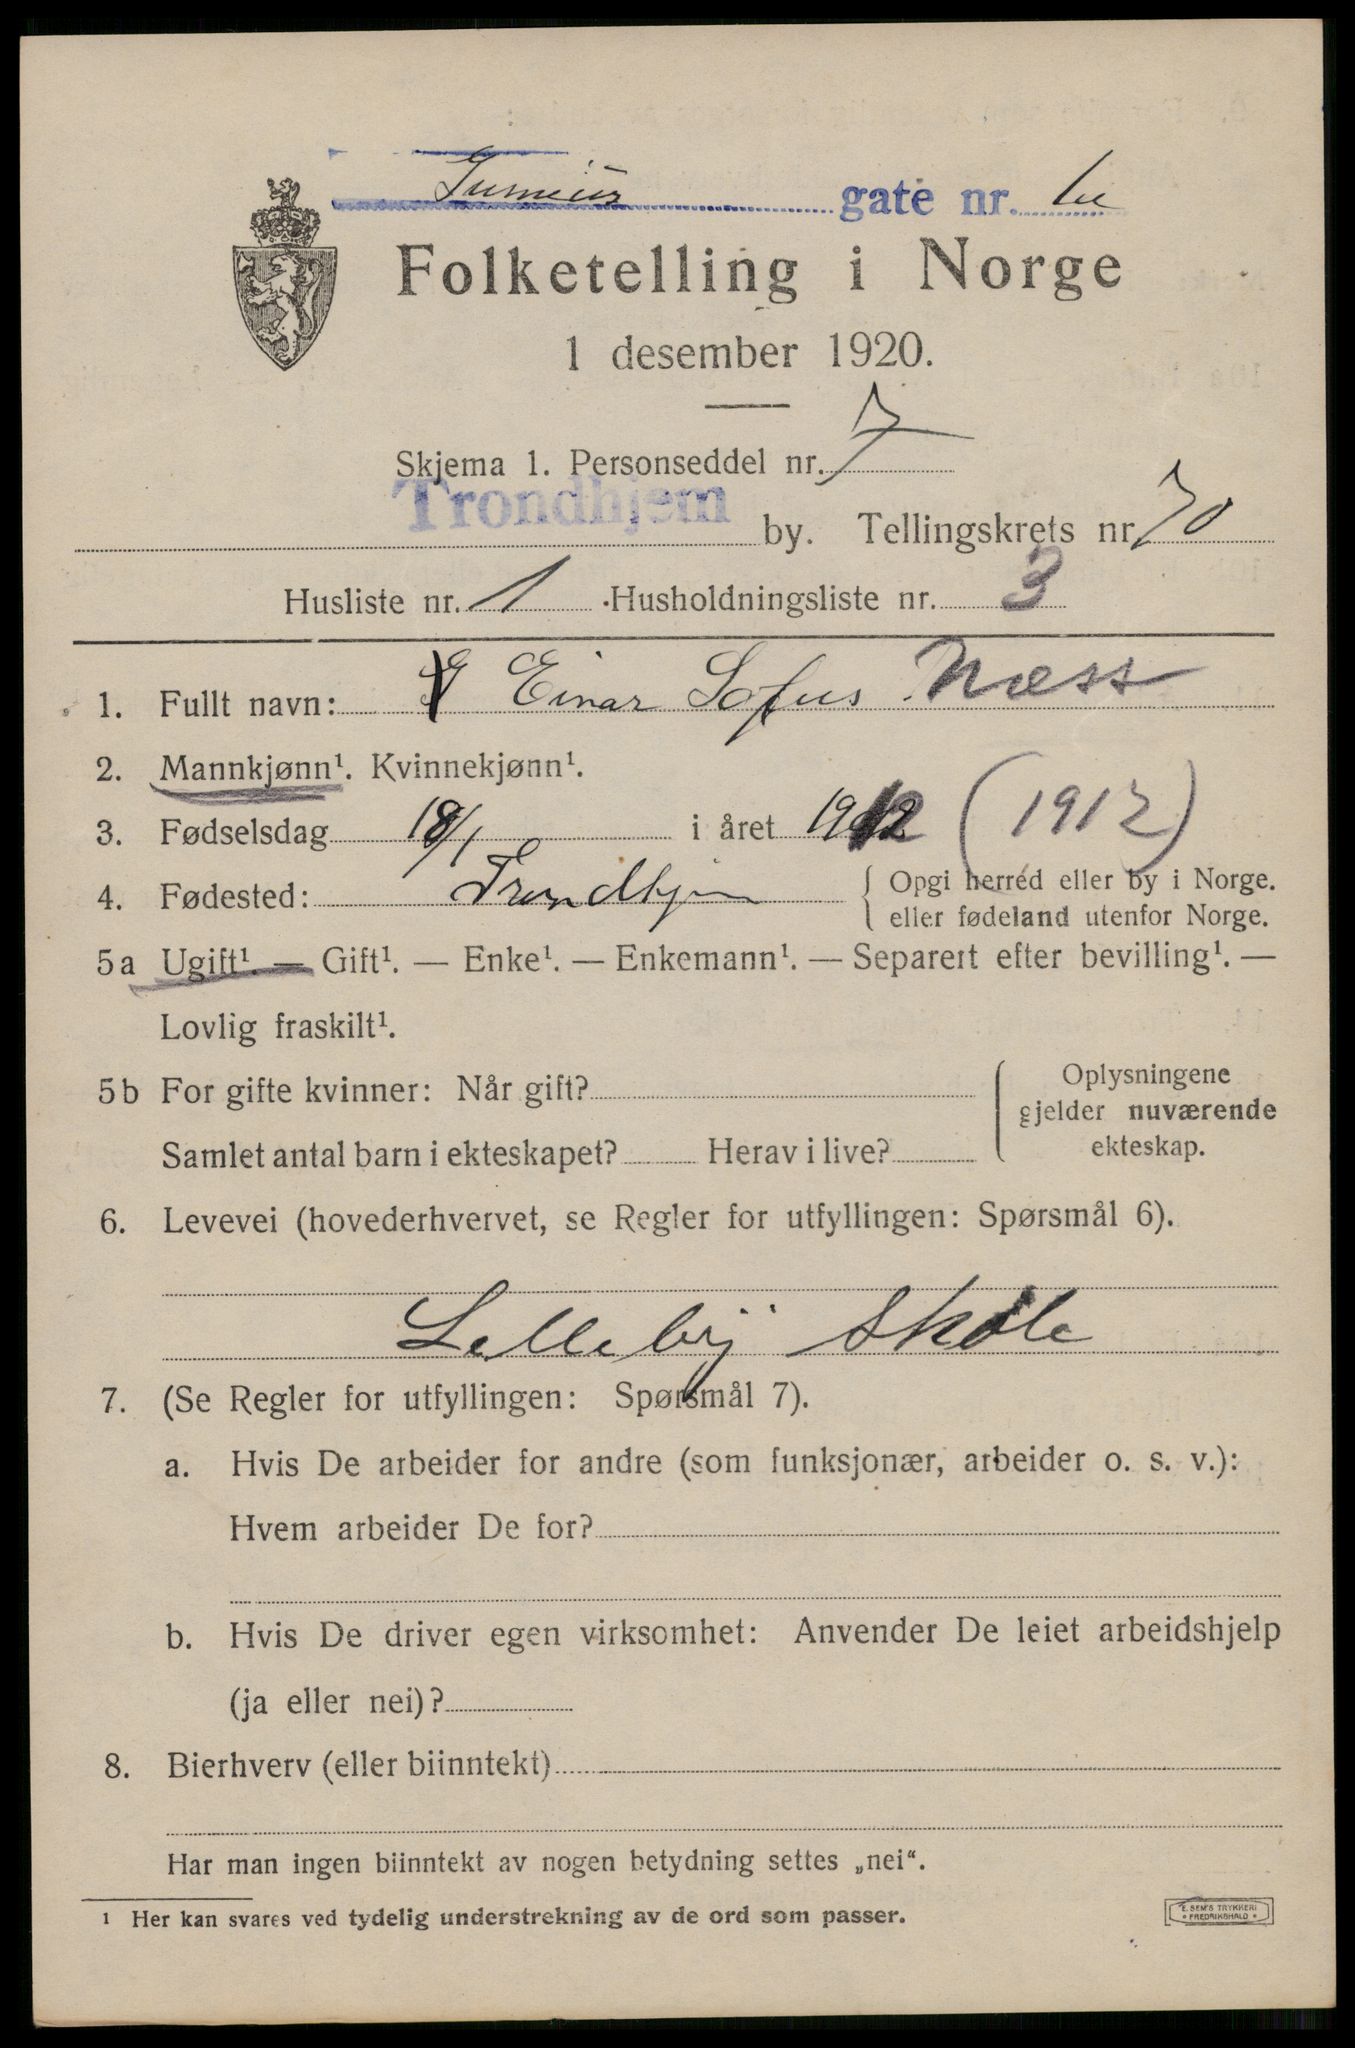 gate nr.
Folketelling i Norge
1 desember 1920.
Skjema 1. Personseddel nr. 7
Trondhjem by. Tellingskrets nr. 70
Husliste nr. 1 Husholdningsliste nr. 3
1. Fullt navn: Einar Sofus Næss
2. Mannkjønn¹. Kvinnekjønn¹.
3. Fødselsdag 18/1 i året 1912 (1912)
4. Fødested: Trondhjem { Opgi herred eller by i Norge.
eller fødeland utenfor Norge.
5a Ugift¹. — Gift¹. — Enke¹. — Enkemann¹. — Separert efter bevilling¹. —
Lovlig fraskilt¹.
5b For gifte kvinner: Når gift?
Samlet antal barn i ekteskapet? Herav i live?
Oplysningene
gjelder nuværende
ekteskap.
6. Levevei (hovederhvervet, se Regler for utfyllingen: Spørsmål 6).
Lilleby Skole
7. (Se Regler for utfyllingen: Spørsmål 7).
a. Hvis De arbeider for andre (som funksjonær, arbeider o. s. v.):
Hvem arbeider De for?
b. Hvis De driver egen virksomhet: Anvender De leiet arbeidshjelp
(ja eller nei)?
8. Bierhverv (eller biinntekt)
Har man ingen biinntekt av nogen betydning settes „nei“.
¹ Her kan svares ved tydelig understrekning av de ord som passer.
E. SEM'S TRYKKERI
• FREDRIKSHALD •